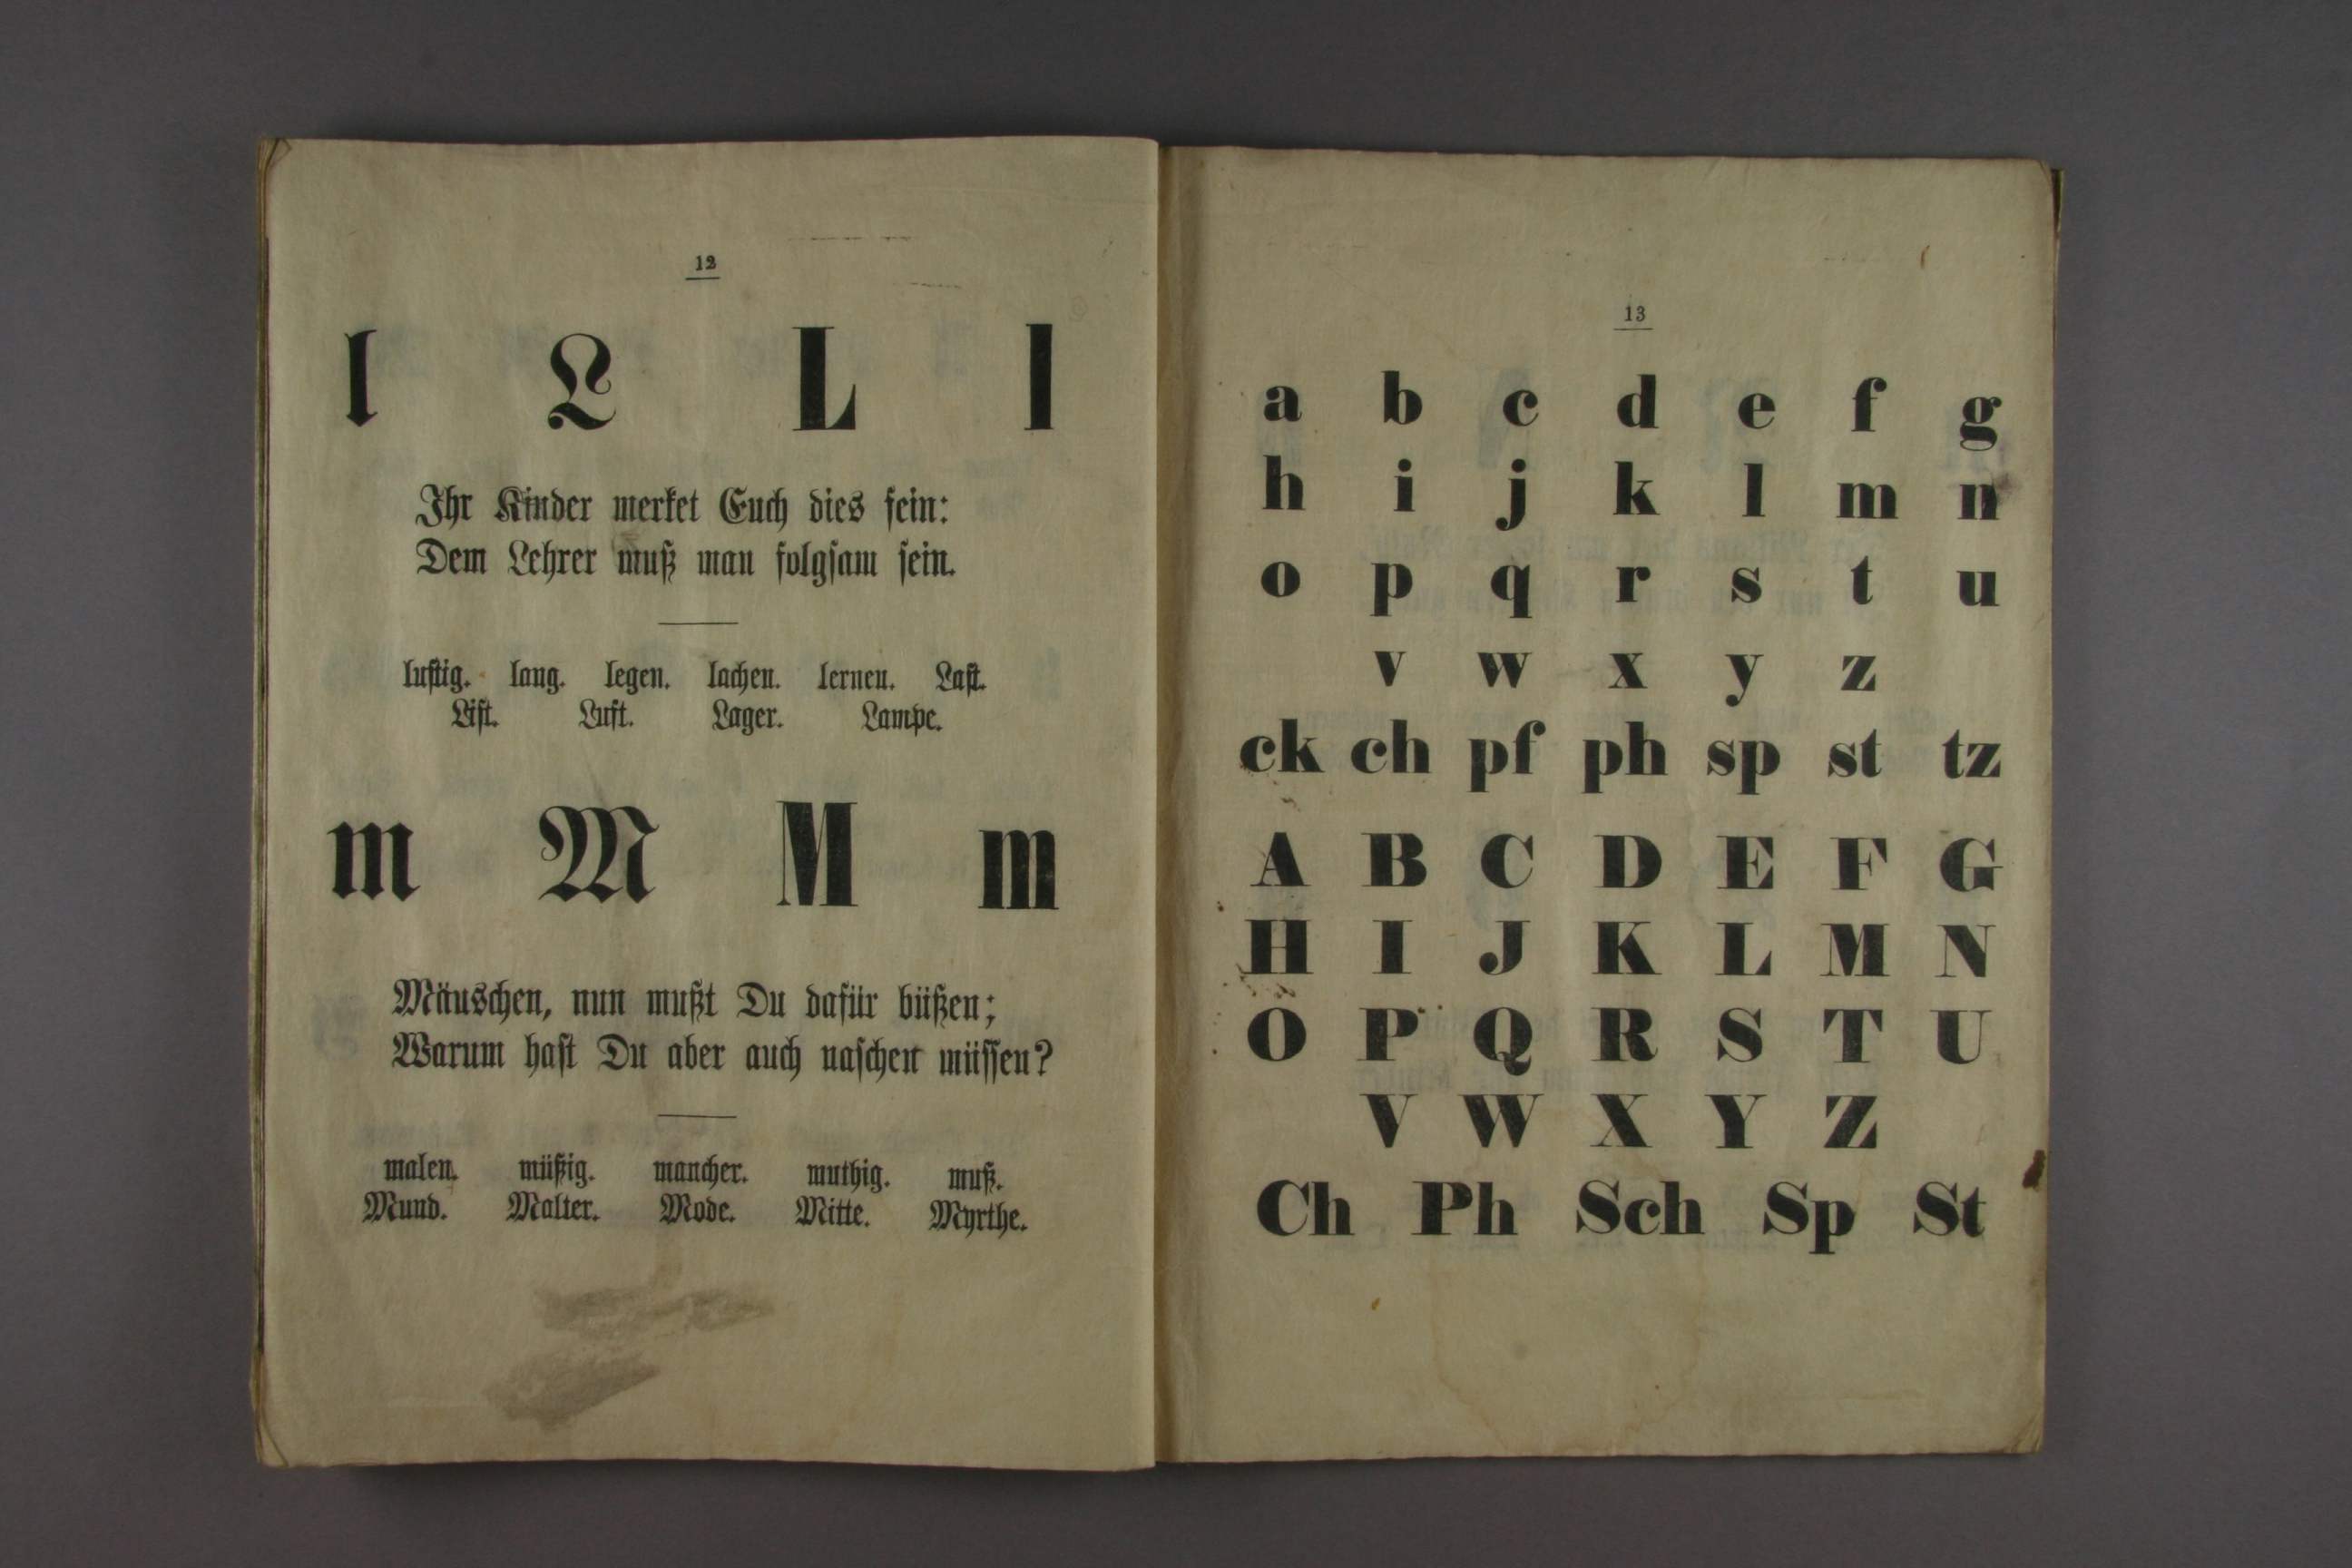 12
l L L l
Ihr Kinder merket Euch dies fein:
Dem Lehrer muß man folgsam sein.
lustig. lang. legen. lachen. lernen. Last.
List. Luft. Lager. Lampe.
m M M m
Mäuschen, nun mußt Du dafür büßen;
Warum hast Du aber auch naschen müssen?
malen. müßig. mancher. muthig. muß.
Mund. Malter. Mode. Mitte. Myrthe.
13
a b c d e f g
h i j k l m n
o p q r s t u
v w x y z
ck ch pf ph sp st tz
A B C D E F G
H I J K L M N
O P Q R S T U
V W X Y Z
Ch Ph Sch Sp St